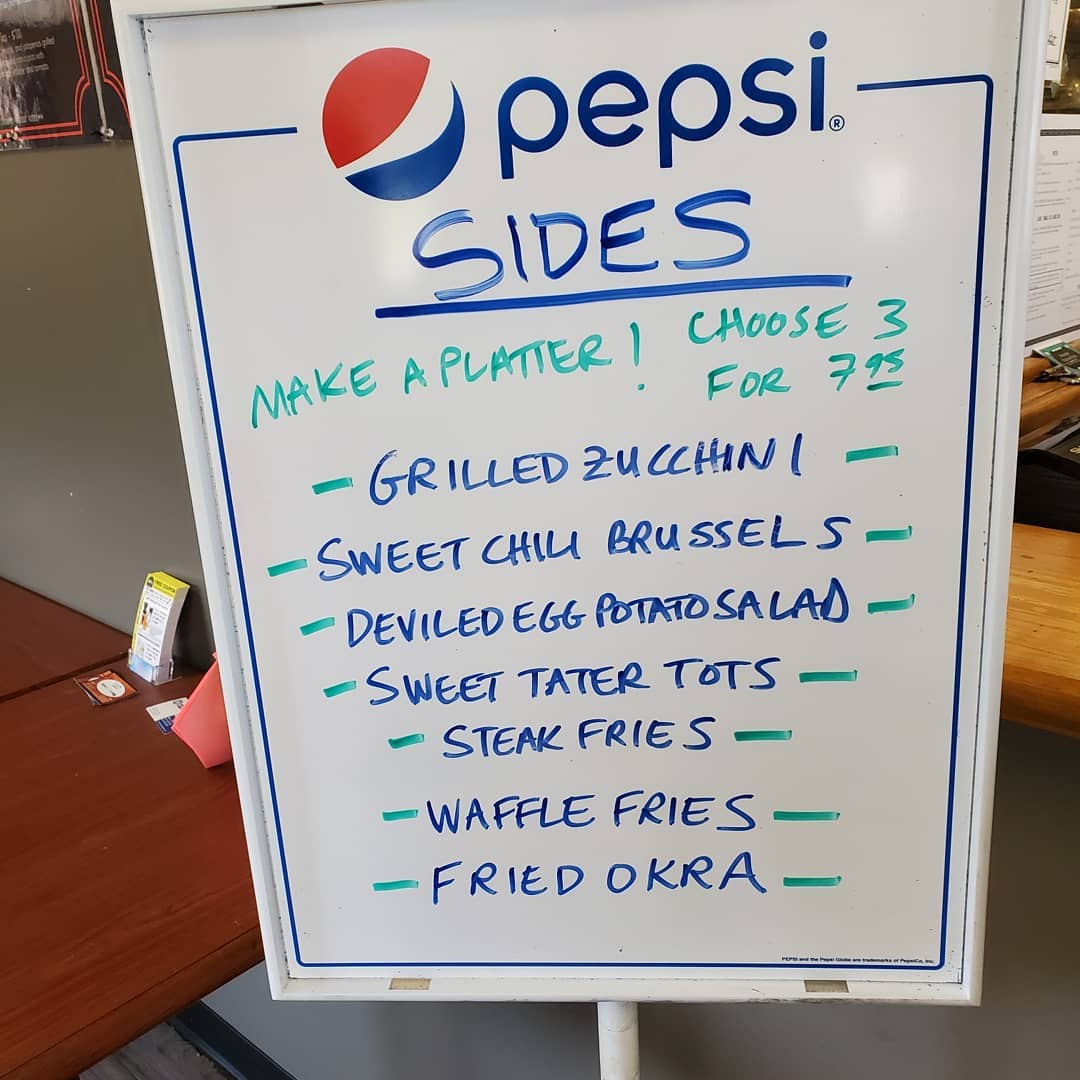 pepsi®
SIDES
MAKE A PLATTER! CHOOSE 3
FOR 7 95
- GRILLED ZUCCHINI -
- SWEET CHILI BRUSSELS -
- DEVILED EGG POTATO SALAD -
- SWEET TATER TOTS -
- STEAK FRIES -
- WAFFLE FRIES -
- FRIED OKRA -
PEPSI and the Pepsi Globe are trademarks of PepsiCo, Inc.